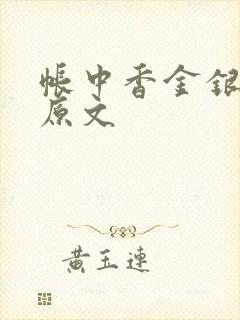 帐中香金银
原文
黄玉连